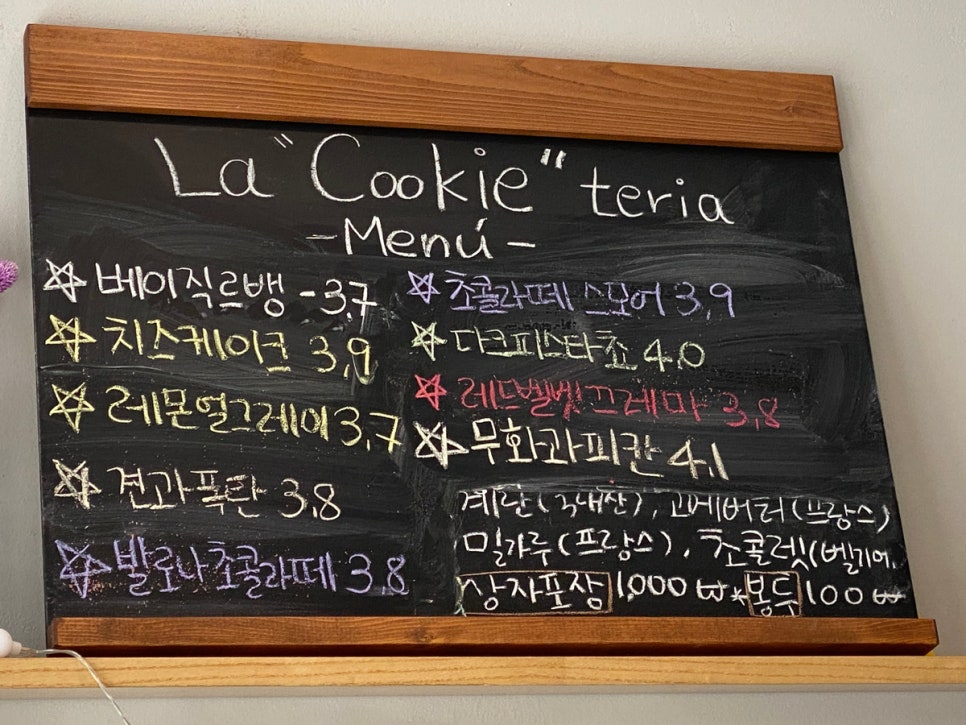 La "Cookie" teria
-Menú-
☆ 베이직르뱅 -3,7
☆ 치즈케이크 3,9
☆ 레몬얼그레이 3,7
☆ 견과폭탄 3,8
☆ 발로나초콜라떼 3,8
☆ 초콜라떼 스모어 3,9
☆ 다크피스타쵸 4.0
☆ 레드벨벳크레마 3,8
☆ 무화과피칸 4,1
계란(국내산), 고메버터(프랑스)
밀가루(프랑스), 초콜렛(벨기에,
상자포장 1,000₩*봉투 100₩